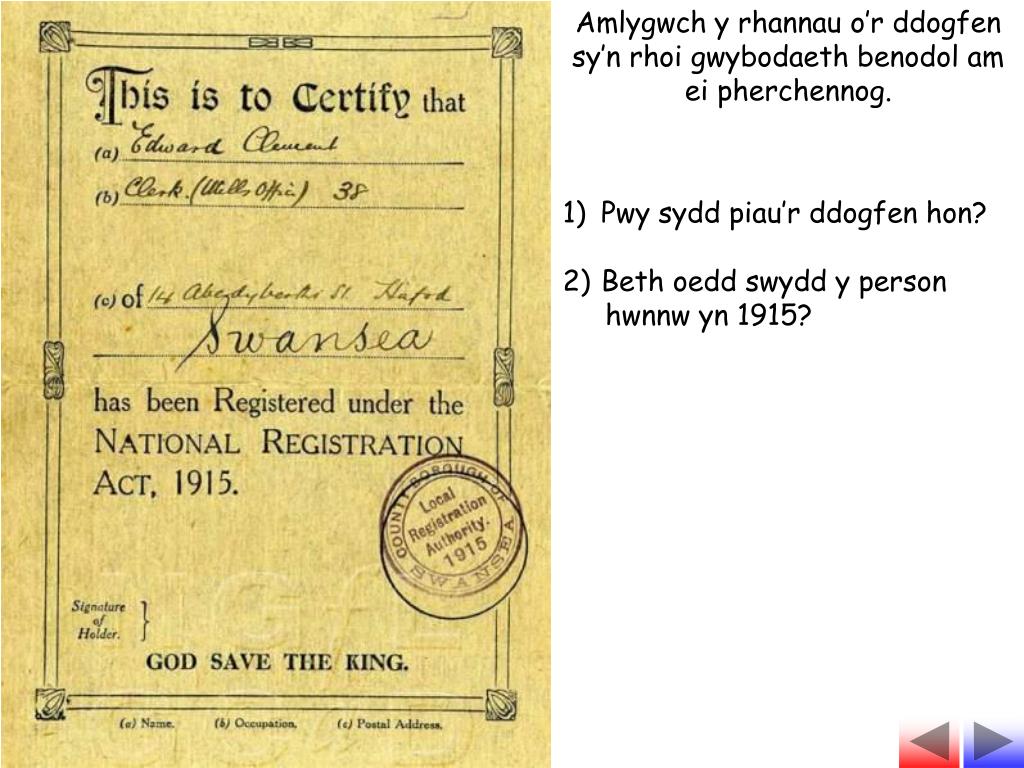 This is to Certify that
(a) Edward Clement
(b) Clerk. (Mills Office) 38
(c) of 14 St. Hafod
Swansea
has been Registered under the
NATIONAL REGISTRATION
ACT, 1915.
COUNTY BOROUGH OF SWANSEA
Local
Registration
Authority.
1915
Signature
of
Holder.
GOD SAVE THE KING.
(a) Name. (b) Occupation. (c) Postal Address.
Amlygwch y rhannau o'r ddogfen
sy'n rhoi gwybodaeth benodol am
ei pherchennog.
1) Pwy sydd piau'r ddogfen hon?
2) Beth oedd swydd y person
hwnnw yn 1915?